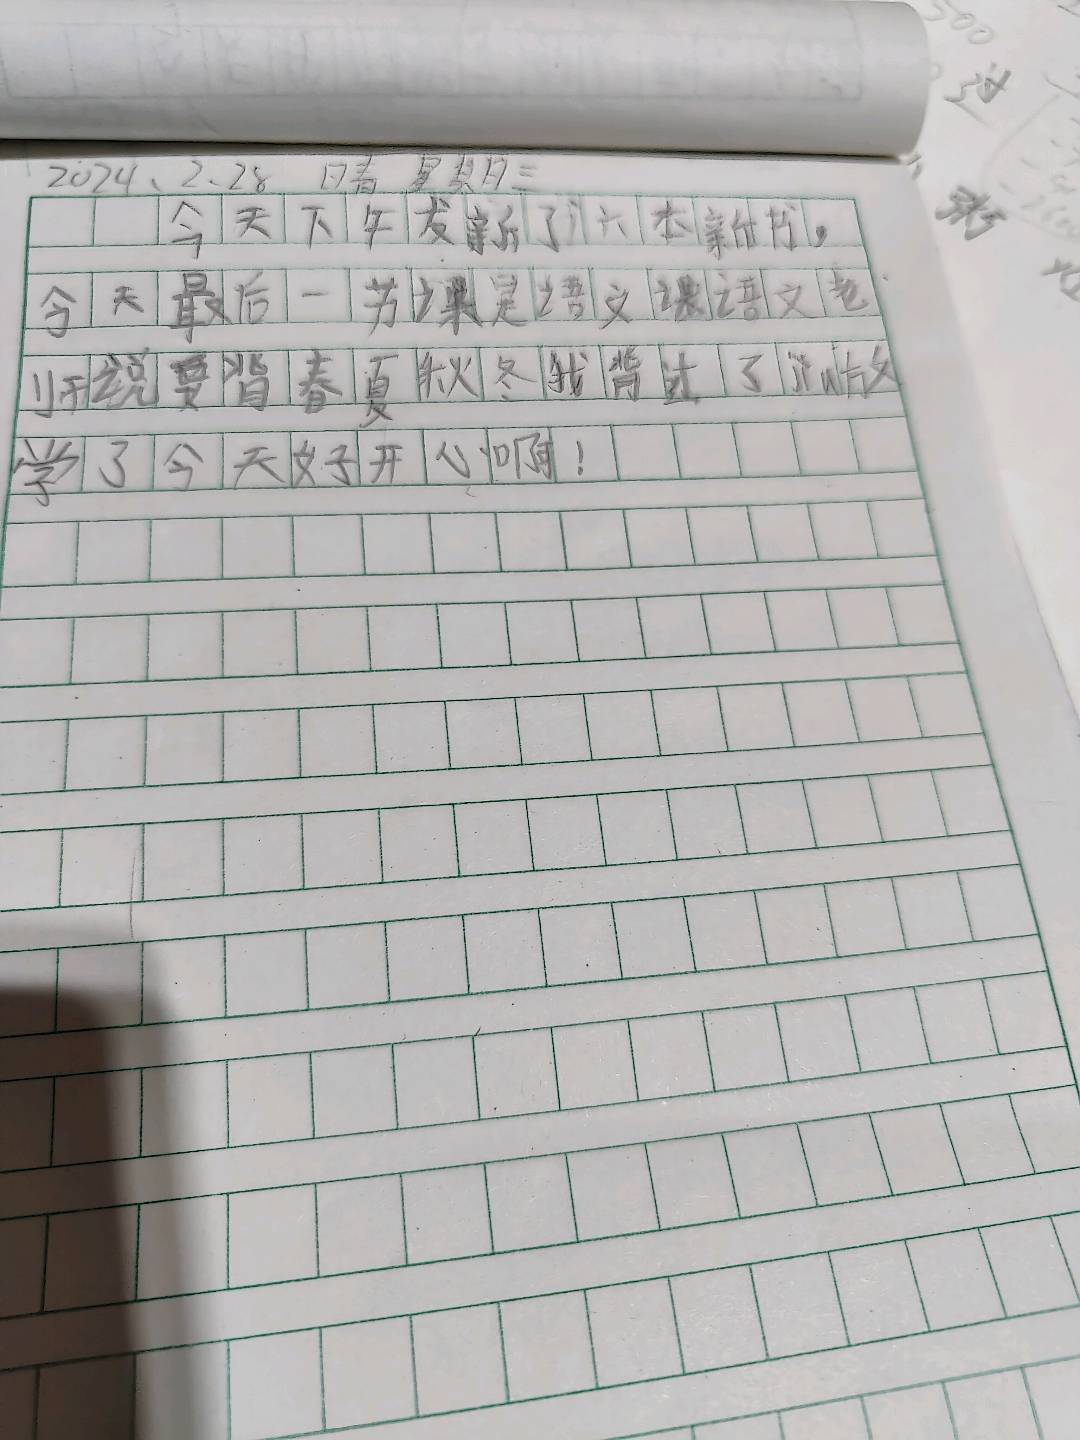 2024、2、28 日春 星期三
今天下午发新了六本新书，
今天最后一节课是语文课语文老
师说要背春夏秋冬我背过了就放
学了今天好开心啊！
500
过
粥